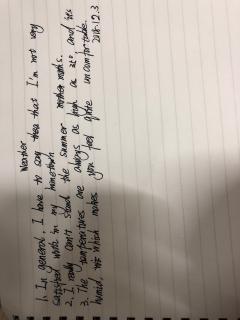 Weather
1. In general, I have to say that I'm not very
satisfied with in my hometown
2. I really can't stand the summer months.
3. The temperatures are always as high as 40°, and it's
humid, which makes you feel quite uncomfortable.
2018.12.3